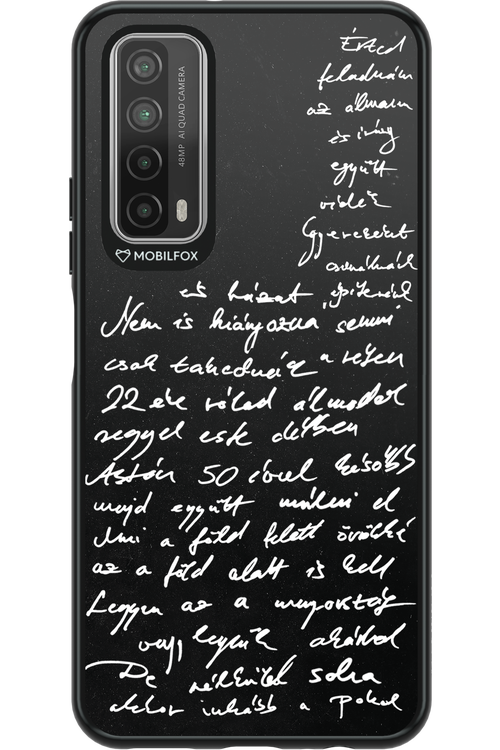 48MP AI QUAD CAMERA
MOBILFOX
Érted
feladnám
az álmaim
és irány
együtt
vidék
Gyerekeket
csinálnák
és házat építenék
Nem is hiányozna semmi
csak takednák a réten
22 éve rólad álmodok
reggel este délben
Aztán 50 évvel később
majd együtt múlni el
Ami a föld felett örökké
az a föld alatt is kell
Legyen az a mennyország
vagy legyünk akárhol
De nélküled soha
akkor inkább a pokol